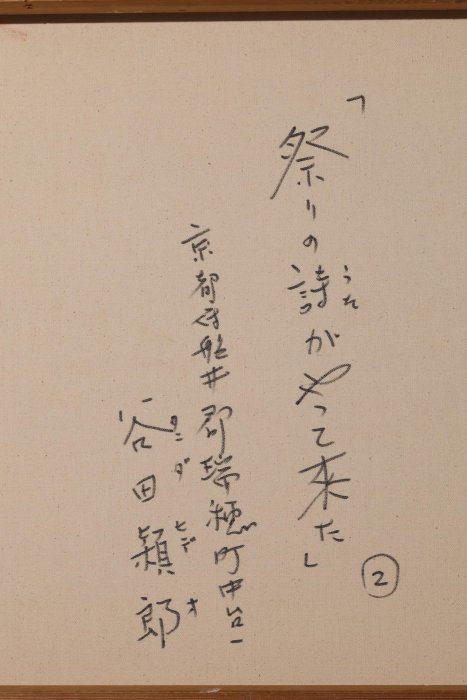 「祭りの詩がやって来た」
うた
②
京都府船井郡瑞穂町中台一
谷田穎郎
タニダ ヒデオ